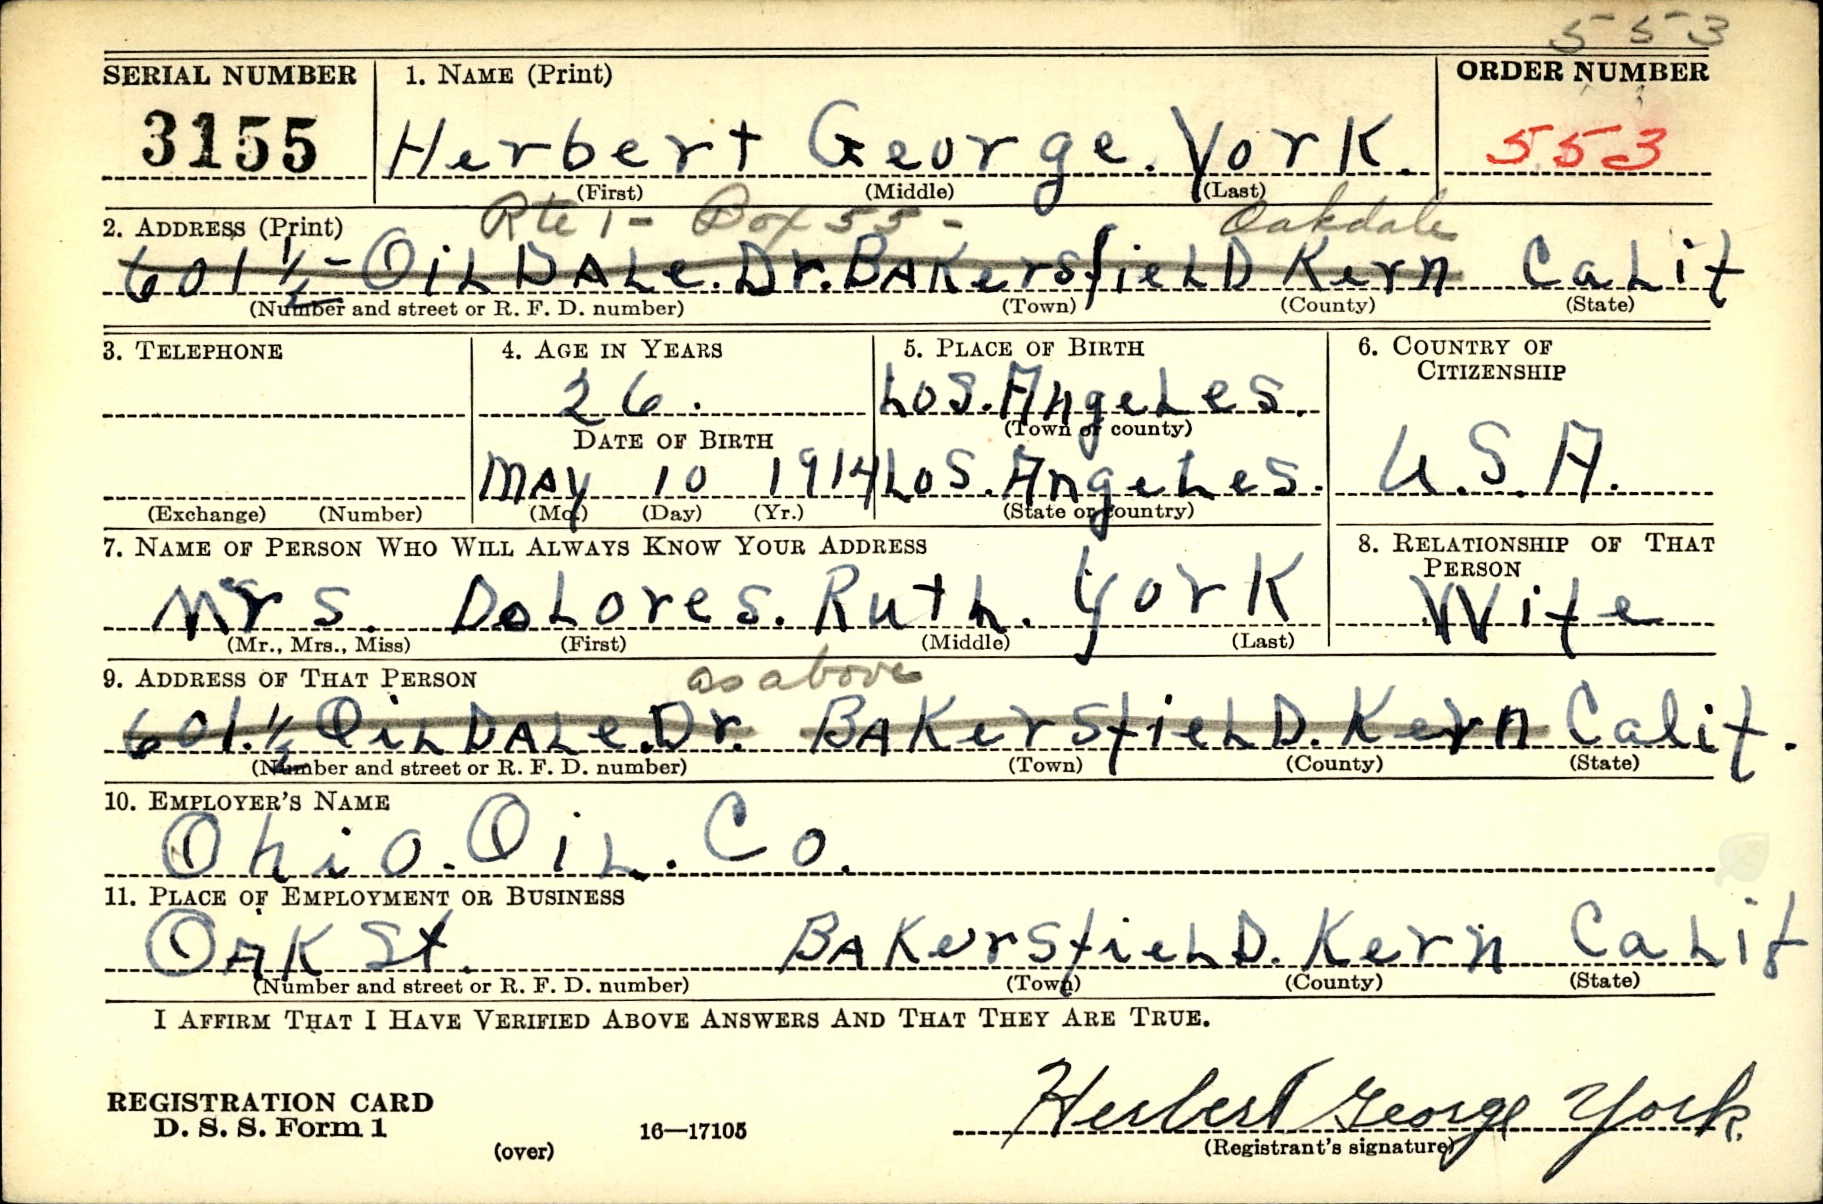 553
SERIAL NUMBER 1. NAME (Print) ORDER NUMBER
3155 Herbert George. York. 553
(First) (Middle) (Last)
Rte 1 - Box 55 - Oakdale
2. ADDRESS (Print)
601 1/2 - OiLDALe. Dr. BAKersfieLD Kern CaLif
(Number and street or R. F. D. number) (Town) (County) (State)
3. TELEPHONE 4. AGE IN YEARS 5. PLACE OF BIRTH 6. COUNTRY OF CITIZENSHIP
26. Los. AngeLes.
(Town or county)
DATE OF BIRTH
MAy 10 1914 Los. AngeLes. U.S.A.
(Exchange) (Number) (Mo.) (Day) (Yr.) (State or country)
7. NAME OF PERSON WHO WILL ALWAYS KNOW YOUR ADDRESS 8. RELATIONSHIP OF THAT PERSON
Mrs. DeLores. Ruth. York Wife
(Mr., Mrs., Miss) (First) (Middle) (Last)
as above
9. ADDRESS OF THAT PERSON
601. 1/2 OiLDALe. Dr. BAKersfieLD. Kern Calif.
(Number and street or R. F. D. number) (Town) (County) (State)
10. EMPLOYER'S NAME
Ohio. OiL. Co.
11. PLACE OF EMPLOYMENT OR BUSINESS
OAK St. BAKersfieLD. Kern CaLif
(Number and street or R. F. D. number) (Town) (County) (State)
I AFFIRM THAT I HAVE VERIFIED ABOVE ANSWERS AND THAT THEY ARE TRUE.
REGISTRATION CARD
D. S. S. Form 1 16—17105 Herbert George York.
(over) (Registrant's signature)